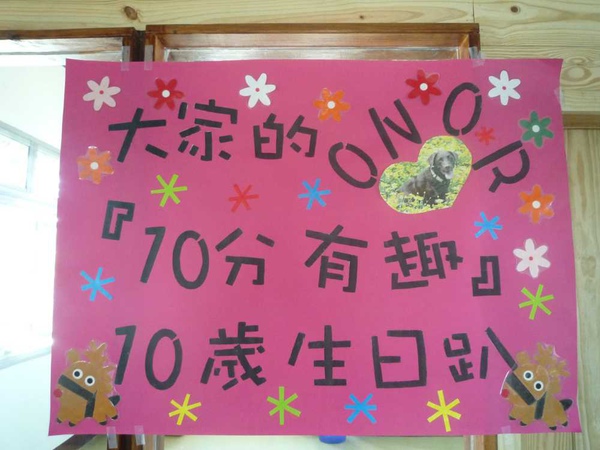 大家的ONOR
『10分有趣』
10歲生日趴